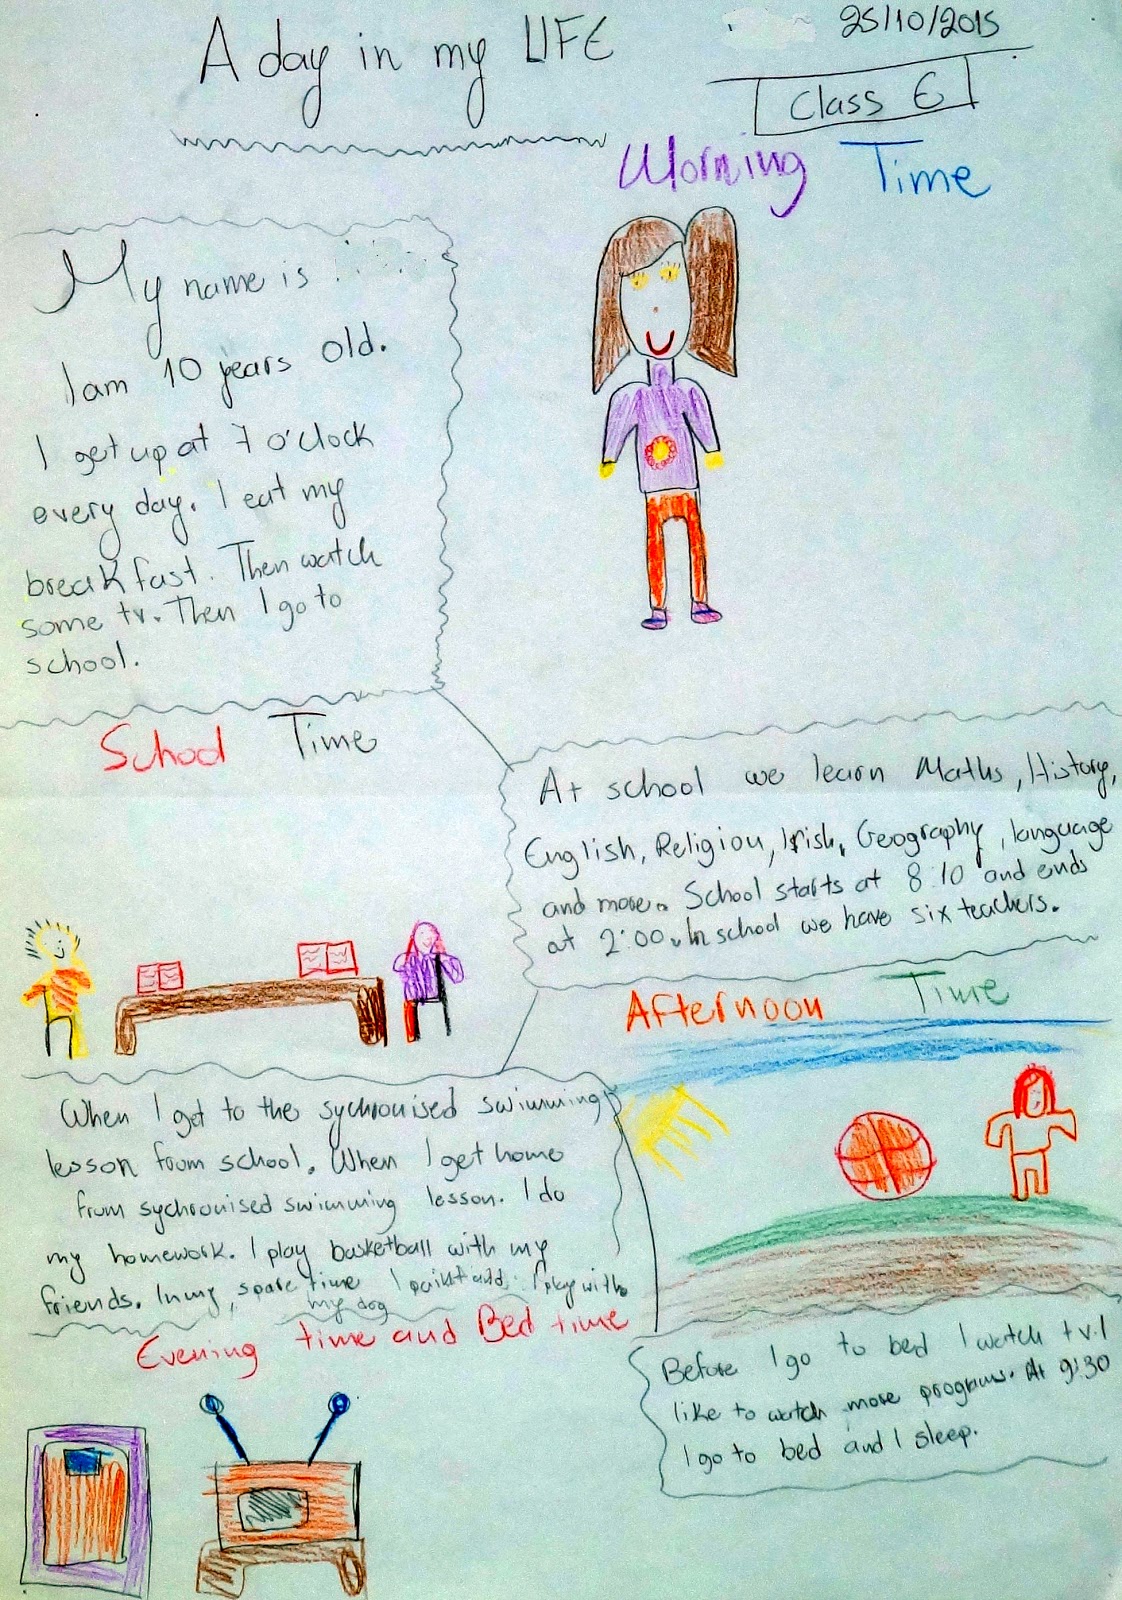 A day in my LIFE
25/10/2015
Class E
Morning Time
My name is
I am 10 years old.
I get up at 7 o'clock
every day. I eat my
breakfast. Then watch
some tv. Then I go to
school.
School Time
At school we learn Maths, History,
English, Religion, Irish, Geography, language
and more. School starts at 8:10 and ends
at 2:00. In school we have six teachers.
Afternoon Time
When I get to the sychronised swimming
lesson from school. When I get home
from sychronised swimming lesson. I do
my homework. I play basketball with my
friends. In my spare time I paint and I play with
my dog
Evening time and Bed time
Before I go to bed I watch tv. I
like to watch more programs. At 9:30
I go to bed and I sleep.